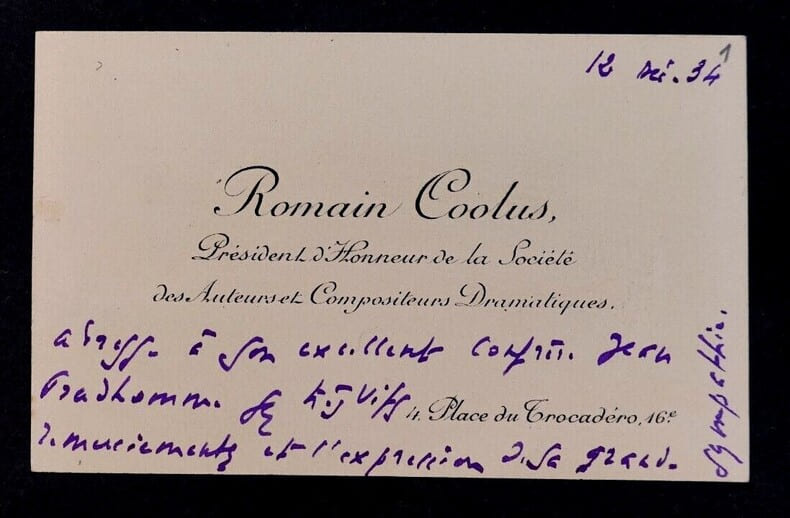 12 Déc. 34
1
Romain Coolus,
Président d'Honneur de la Société
des Auteurs et Compositeurs Dramatiques.
adresse à son excellent confrère Jean
Prudhomme ses très vifs
4, Place du Trocadéro, 16e
remerciements et l'expression de sa grande
sympathie.